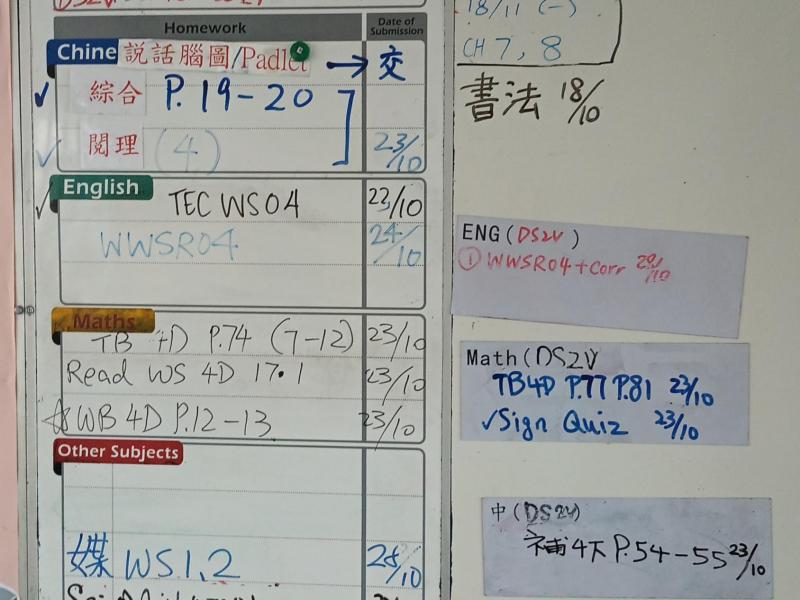 Homework
Date of Submission
Chine 說話腦圖/Padlet → 交
✓ 綜合 P.19-20
✓ 閱理 (4) 23/10
English
✓ TEC WS04 22/10
WWSR04 24/10
Maths
TB 4D P.74 (7-12) 23/10
Read WS 4D 17.1 23/10
☆WB 4D P.12-13 23/10
Other Subjects
媒 WS1,2 25/10
18/11 (一)
CH 7, 8
書法 18/10
ENG(DS2V)
① WWSR04+Corr
Math(DS2V
TB4D P.77 P.81 23/10
✓Sign Quiz 23/10
中(DS2V)
補4下 P.54-55 23/10